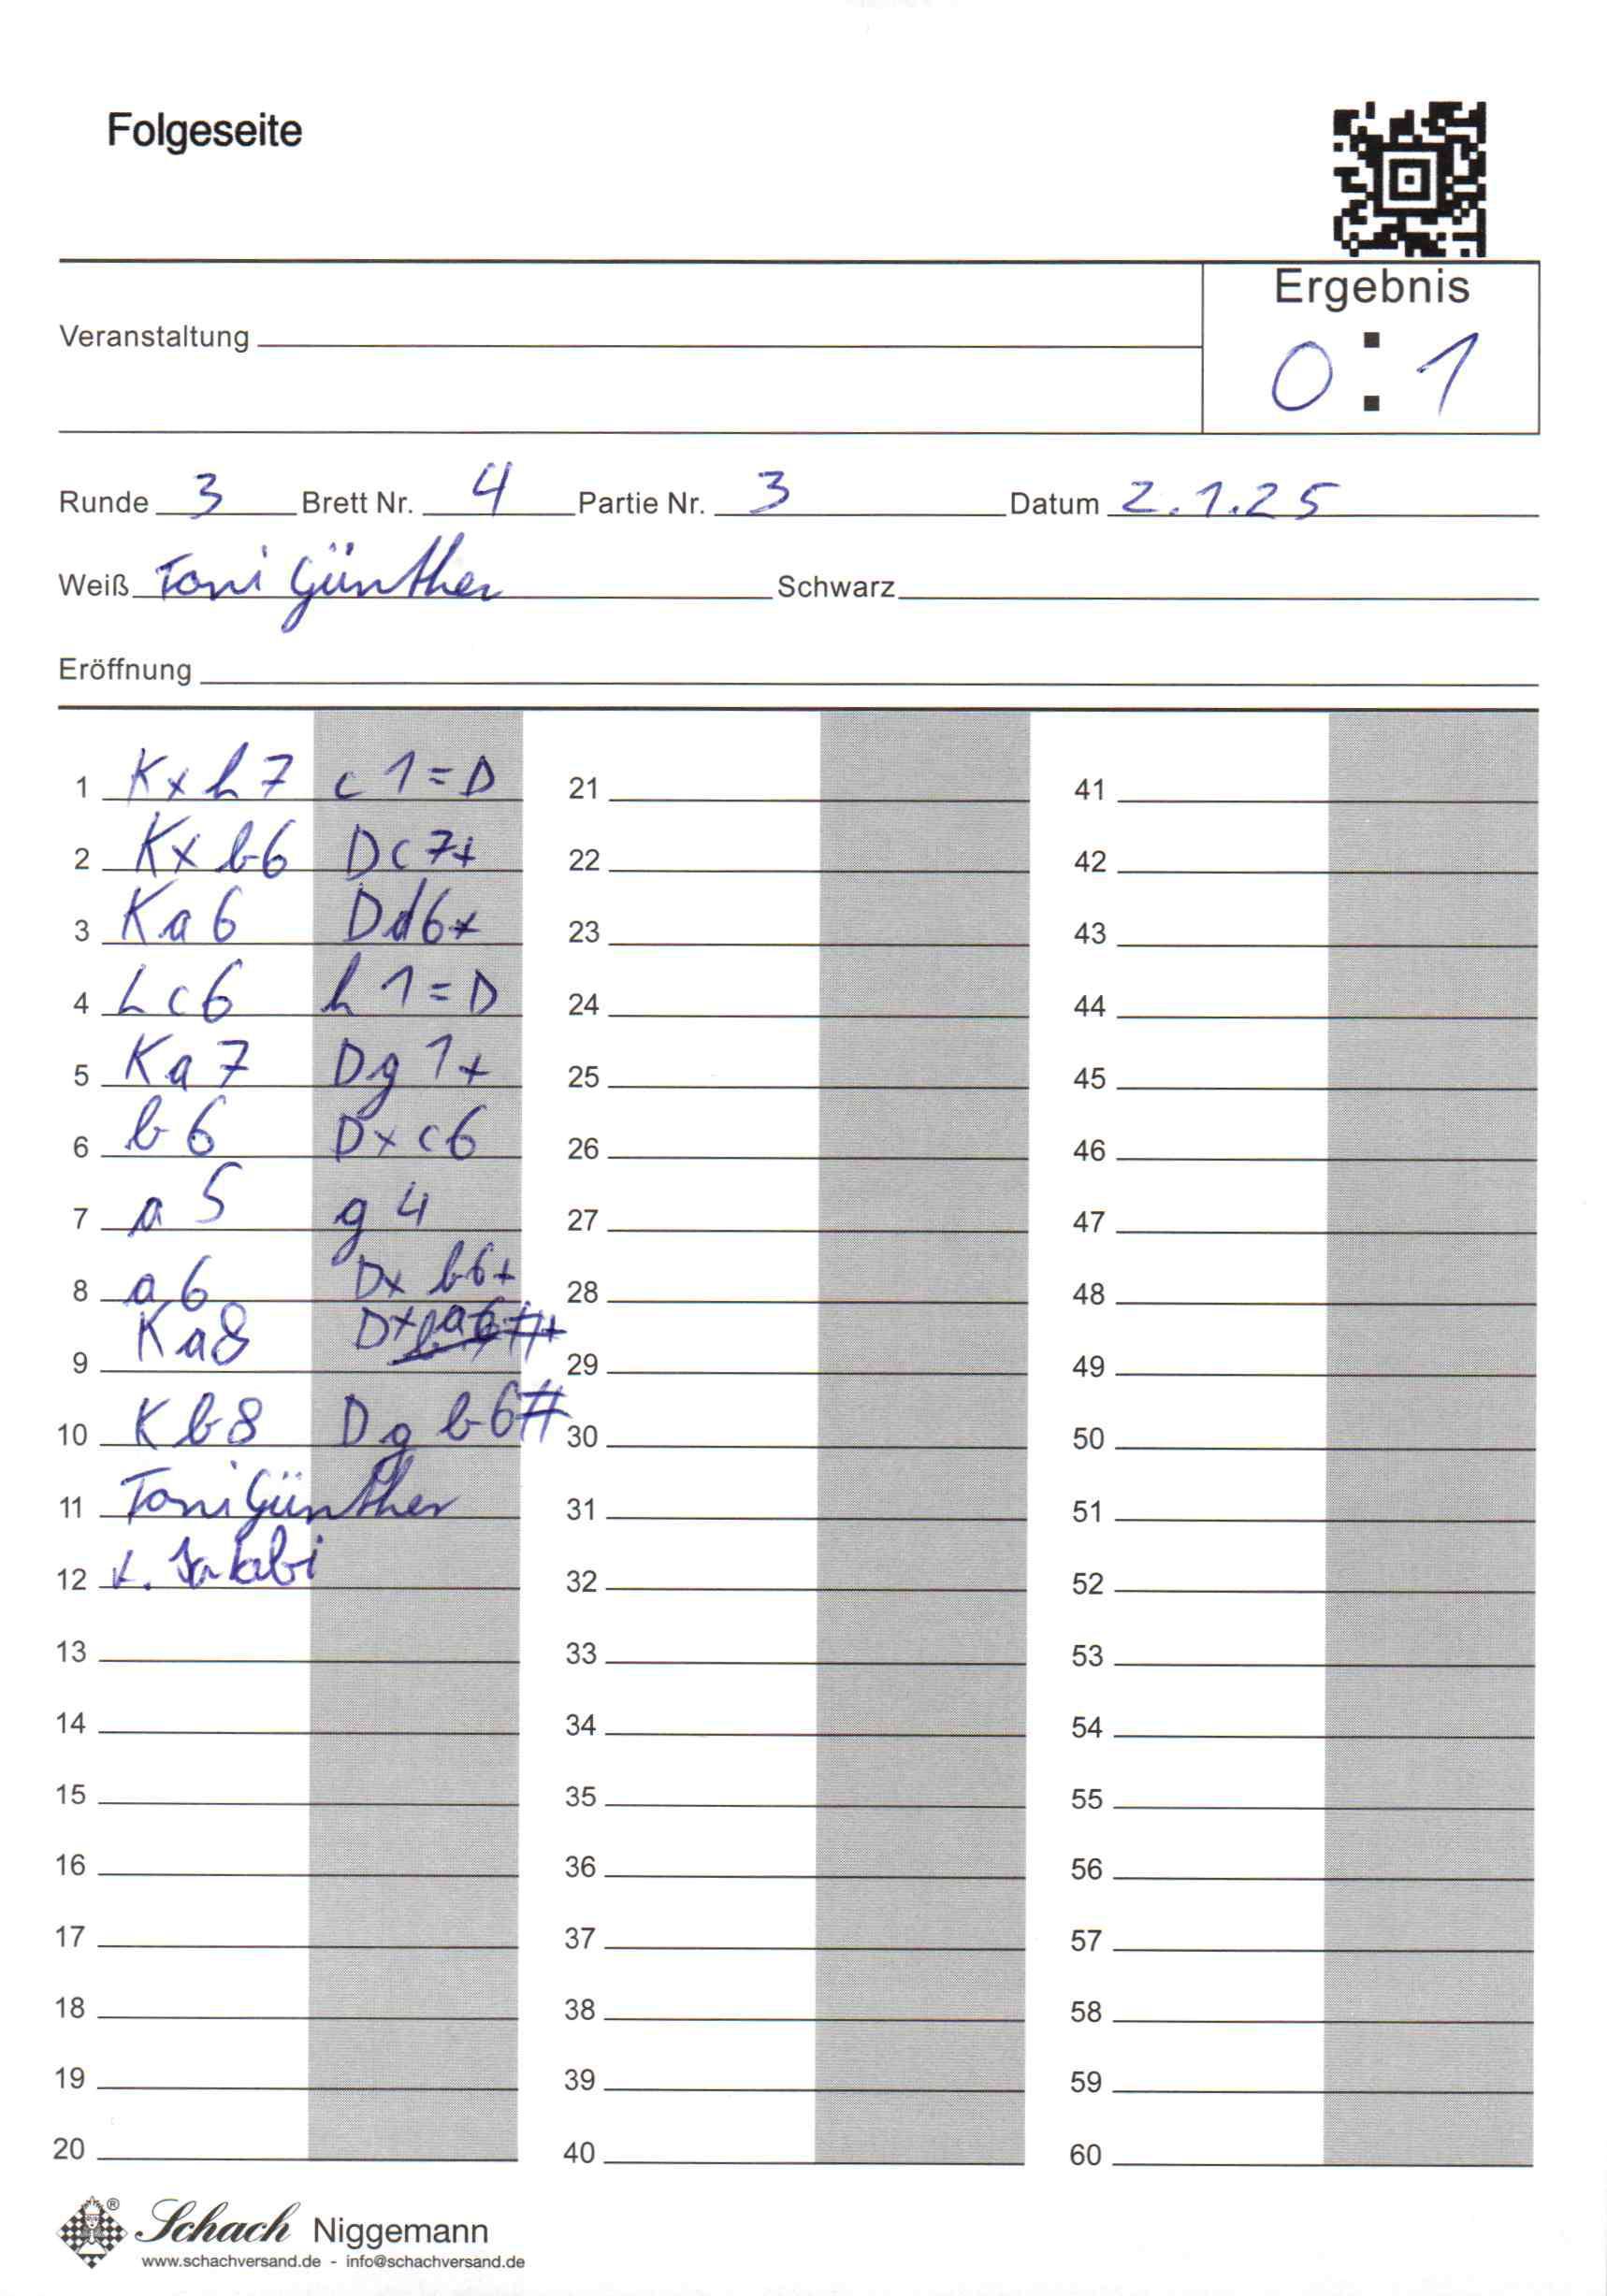 Folgeseite
Ergebnis
Veranstaltung
0:1
Runde 3 Brett Nr. 4 Partie Nr. 3 Datum 2.1.25
Weiß Toni Günther Schwarz
Eröffnung
1 Kxh7 c1=D 21 41
2 Kxb6 Dc7+ 22 42
3 Ka6 Dd6+ 23 43
4 Lc6 h1=D 24 44
5 Ka7 Dg1+ 25 45
6 b6 Dxc6 26 46
7 a5 g4 27 47
8 a6 Dxb6+ 28 48
9 Ka8 Dxa6+ 29 49
10 Kb8 Dgb6# 30 50
11 Toni Günther 31 51
12 32 52
13 33 53
14 34 54
15 35 55
16 36 56
17 37 57
18 38 58
19 39 59
20 40 60
Schach Niggemann
www.schachversand.de - info@schachversand.de